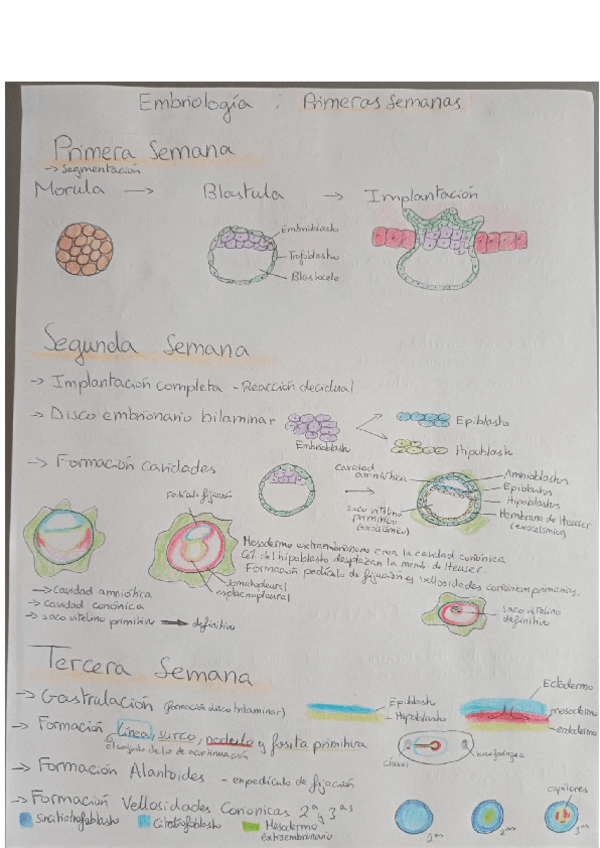 Embriología : Primeras Semanas
Primera Semana
→ Segmentación
Morula → Blastula → Implantación
Embrioblasto
Trofoblasto
Blastocele
Segunda Semana
→ Implantación completa - Reacción decidual
→ Disco embrionario bilaminar
Embrioblasto
Epiblasto
Hipoblasto
→ Formación cavidades
cavidad amniótica
Amnioblastos
Epiblastos
Hipoblastos
Membrana de Heuser (exocelómica)
saco vitelino primitivo (exocelómico)
pedículo fijación
somatopleural
esplacnopleural
Mesodermo extraembrionario crea la cavidad coriónica
Cél del hipoblasto desplazan la memb. de Heuser.
Formación pedículo de fijación y vellosidades coriónicas primarias.
→ cavidad amniótica
→ cavidad coriónica
→ saco vitelino primitivo → definitivo
saco vitelino definitivo
Tercera Semana
→ Gastrulación (formación disco trilaminar)
Epiblasto
Hipoblasto
Ectodermo
mesodermo
endodermo
→ Formación línea, surco, nodulo y fosita primitiva
→ Formación Alantoides - en pedículo de fijación
→ Formación Vellosidades Corionicas 2ªs y 3ªs
Sincitiotrofoblasto
Citotrofoblasto
Mesodermo extraembrionario
capilares
1ªs
2ªs
3ªs